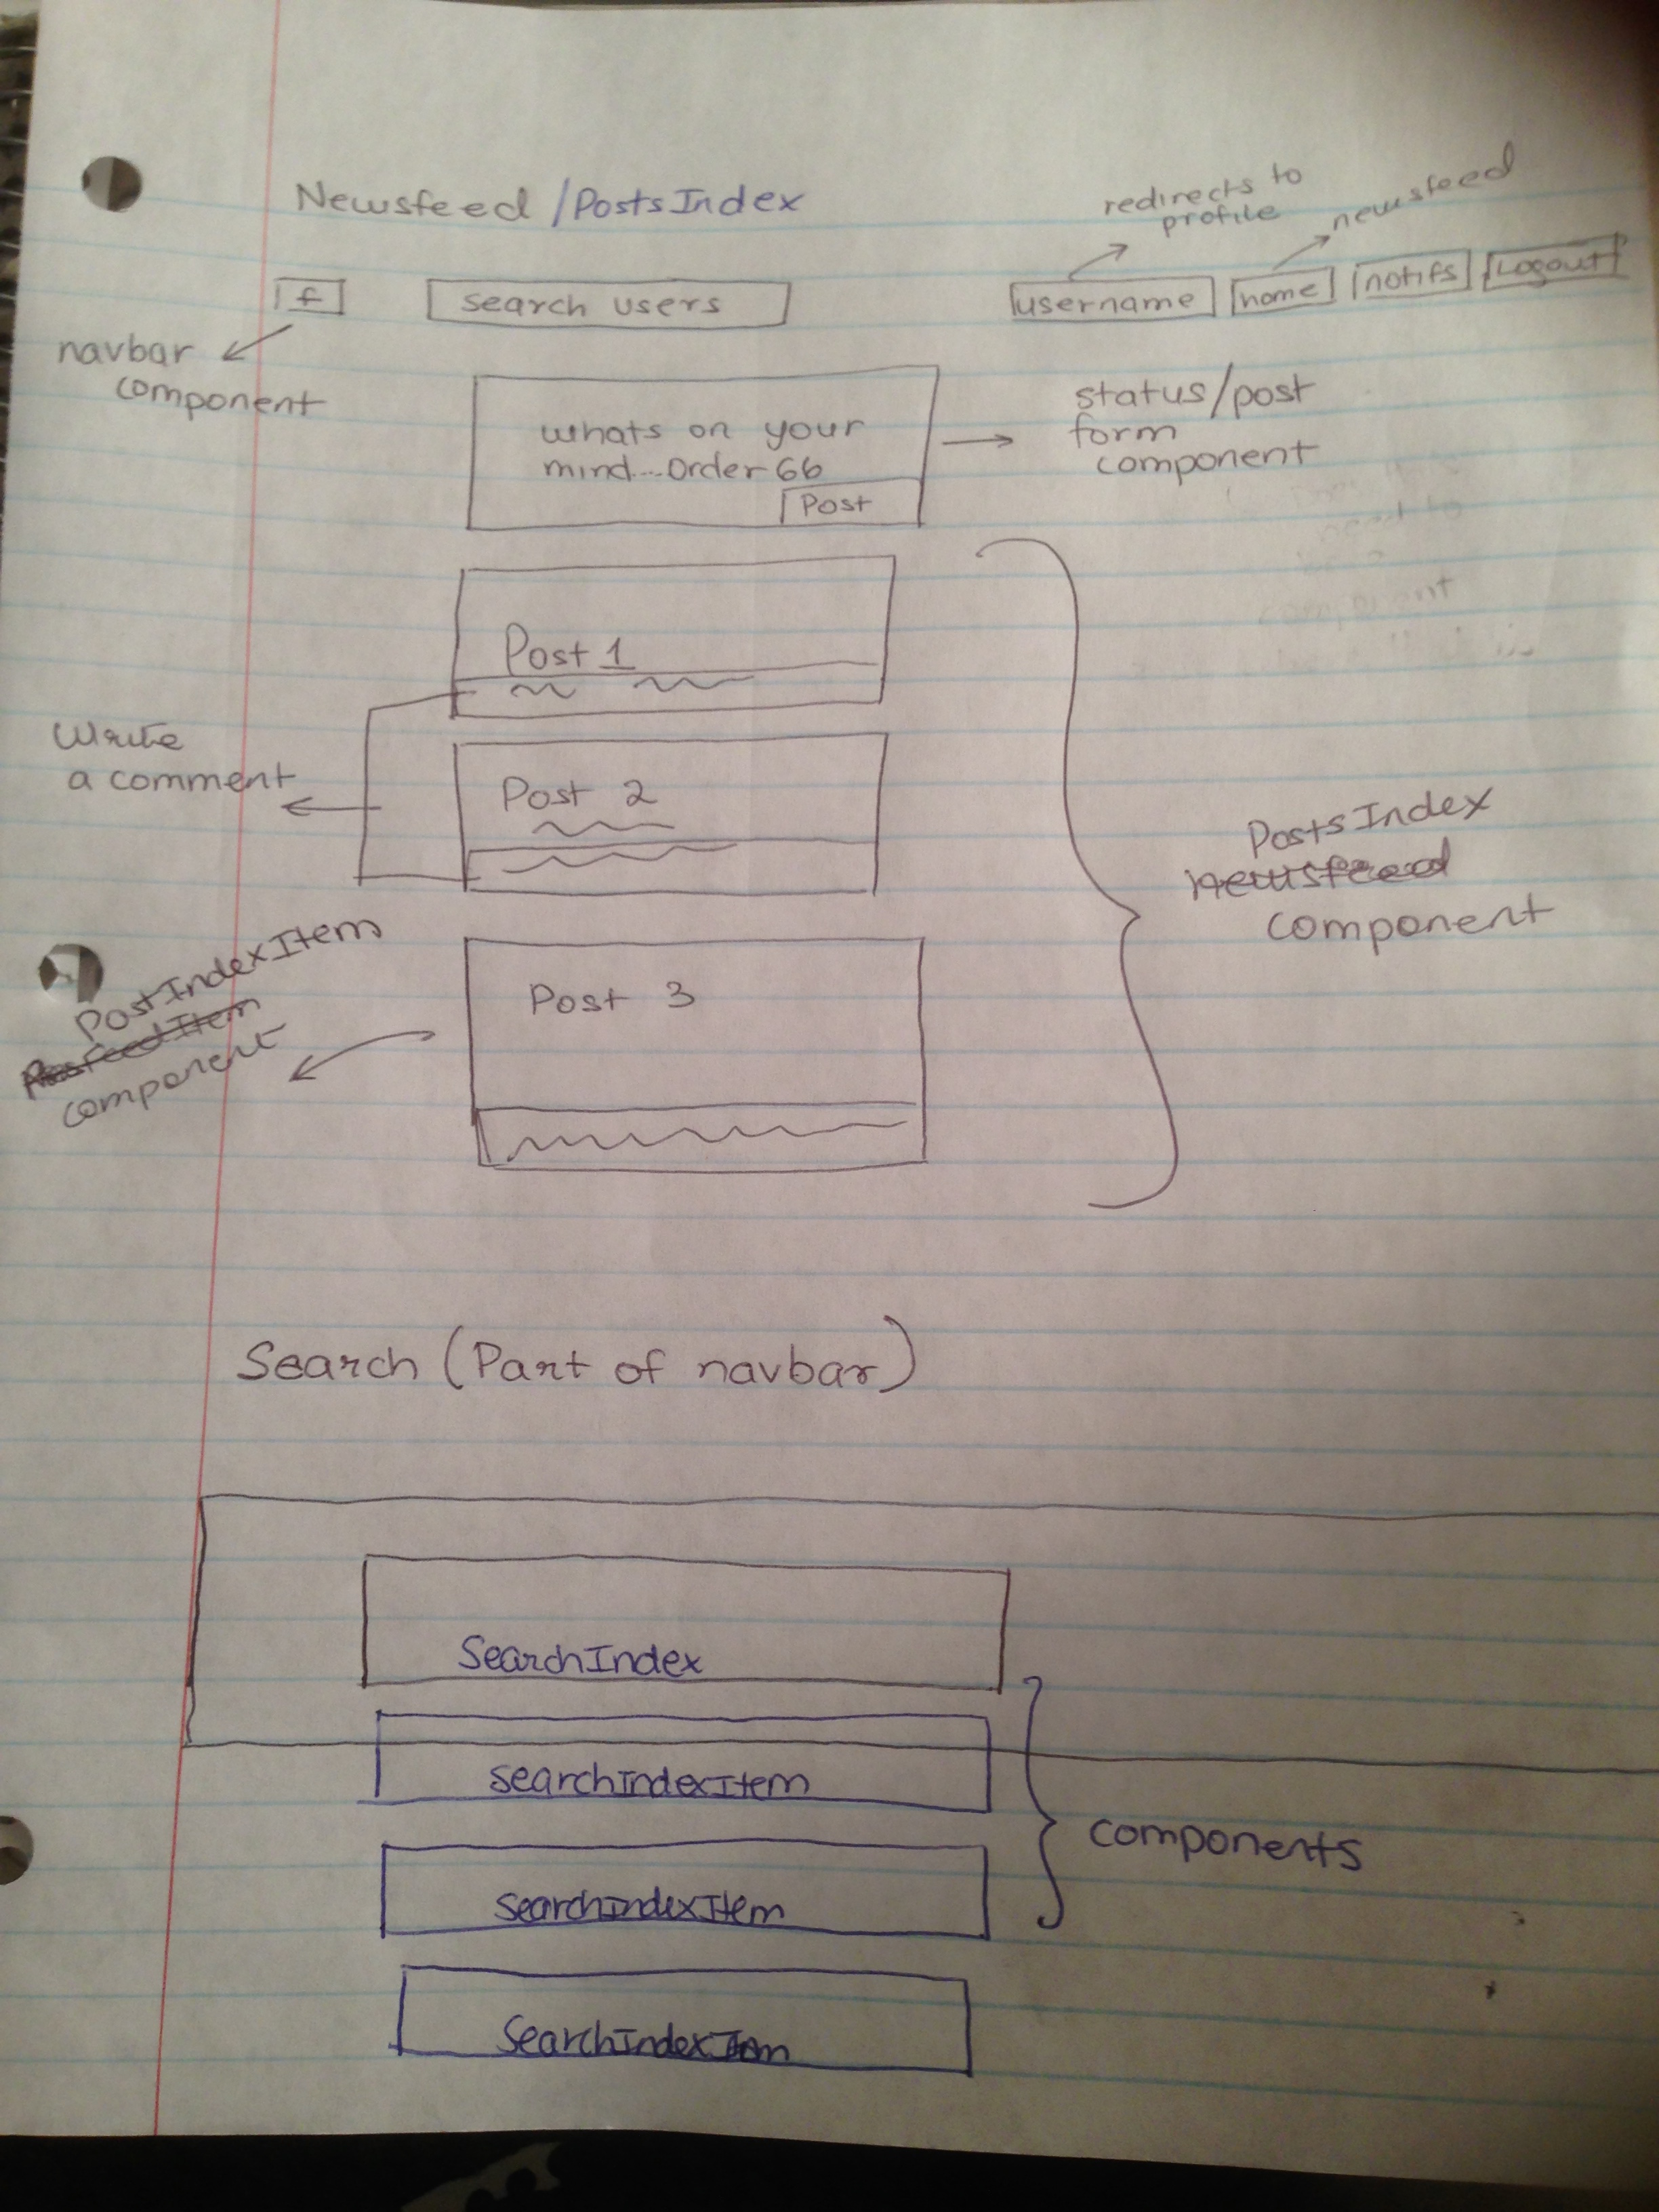 Newsfeed / PostsIndex
redirects to
profile
newsfeed
f
search users
username
home
notifs
Logout
navbar
component
whats on your
mind...Order 66
Post
status/post
form
component
Post 1
Write
a comment
Post 2
PostsIndex
newsfeed
component
PostIndexItem
component
Post 3
Search (Part of navbar)
SearchIndex
SearchIndexItem
components
SearchIndexItem
SearchIndexItem